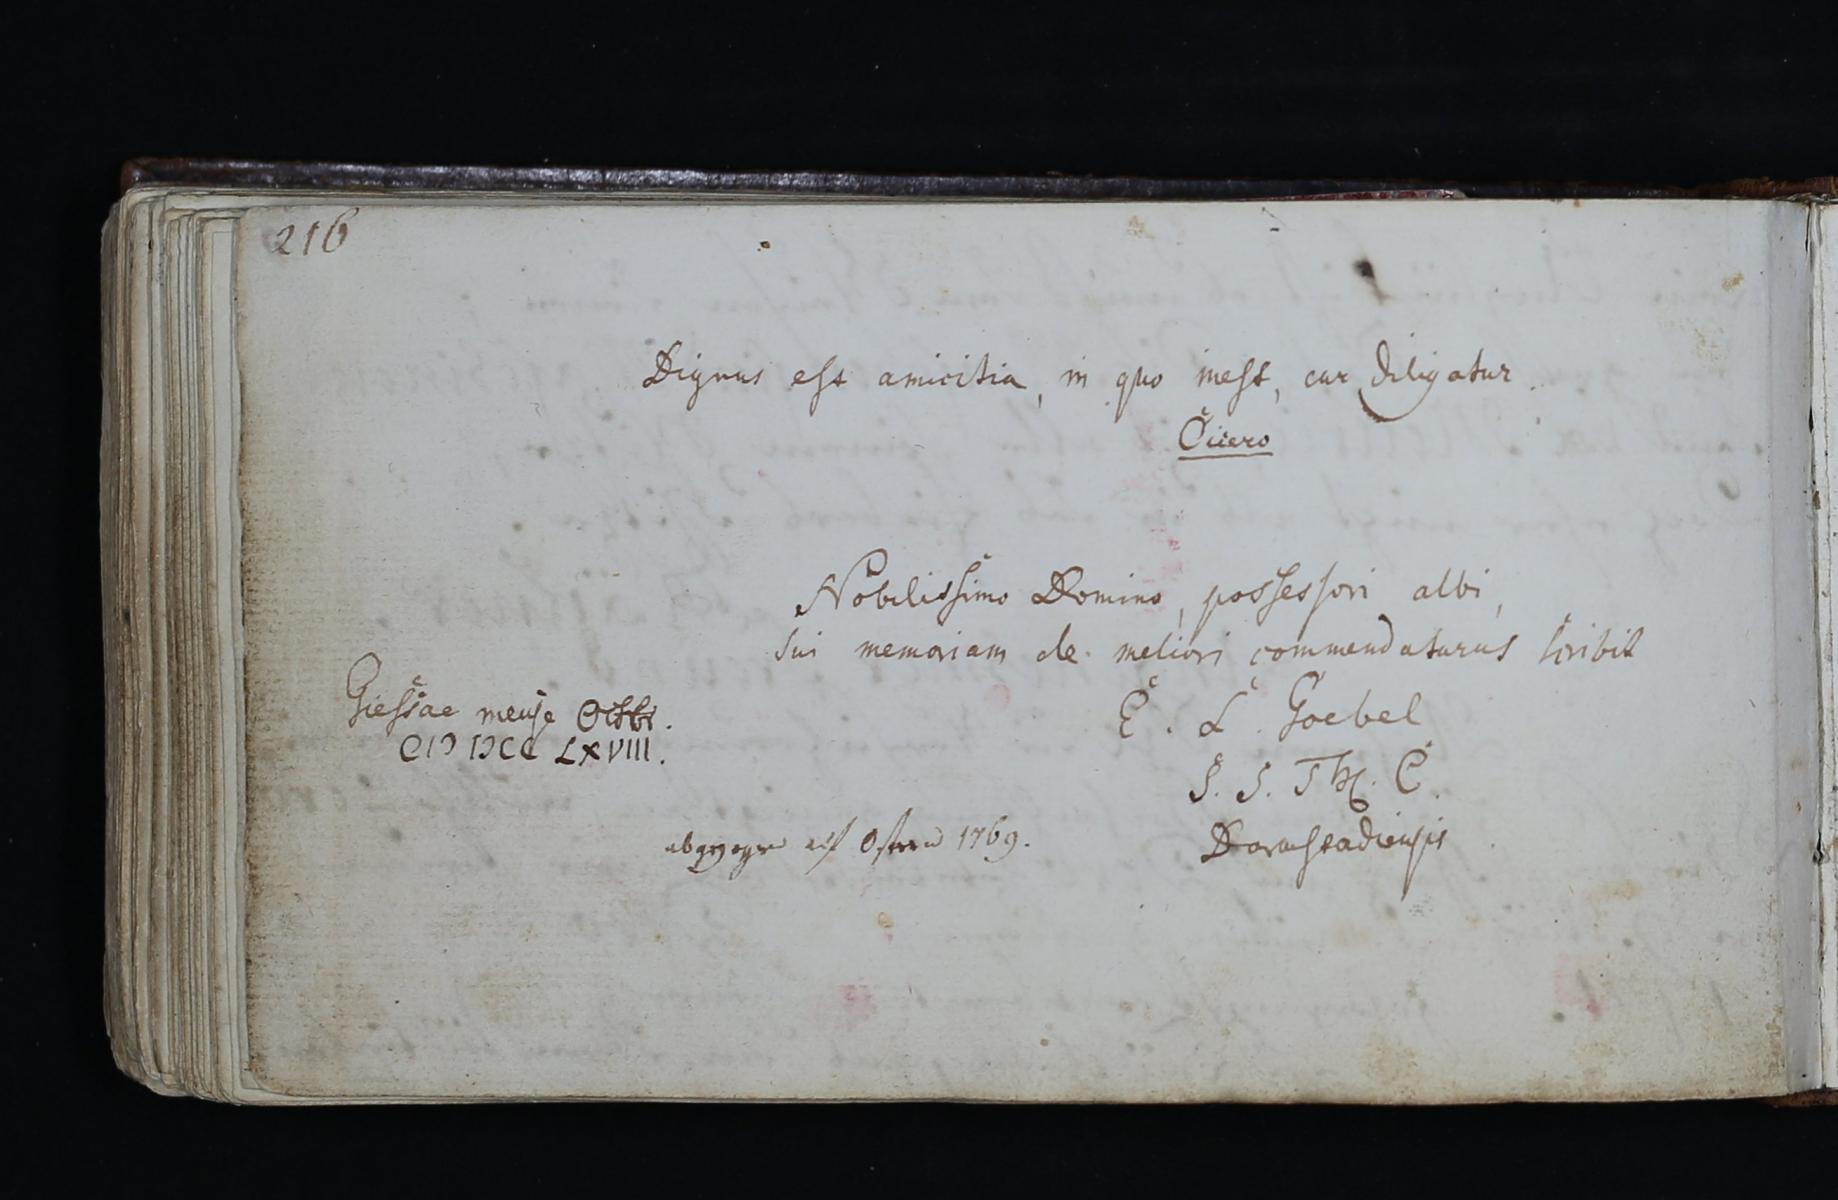 216
Dignus est amicitia, in quo inest, cur diligatur.
Cicero
Nobilissimo Domino, possessori albi,
sui memoriam de meliori commendaturus scribit
Giessae mense Octbr.
CIƆ IƆCC LXVIII.
E. L. Goebel
S. S. Th. C.
Darmstadiensis
abgezogen auf Ostern 1769.